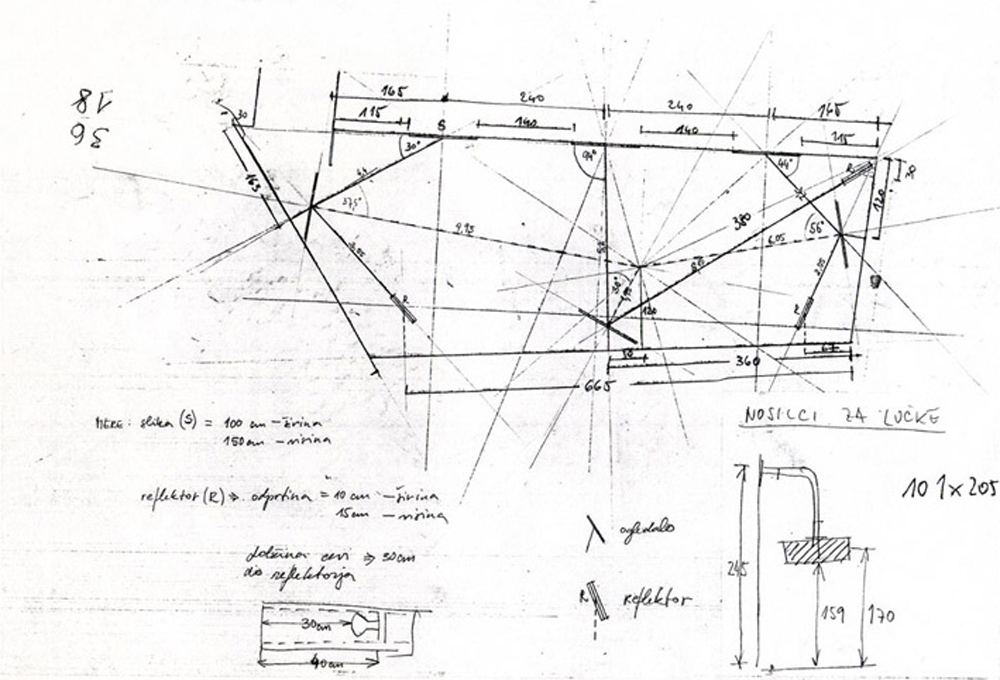 18
36
165
240
240
165
115
S
140
140
115
30
30°
94°
44°
R
163
37,5°
120
9,15
380
6,05
56°
R
R
120
30
360
67
665
MERE: slika (S) = 100 cm - širina
150 cm - višina
NOSILCI ZA LUČKE
reflektor (R) ⇒ odprtina = 10 cm - širina
15 cm - višina
101 x 205
dolžina cevi ⇒ 30 cm
do reflektorja
ogledalo
R reflektor
245
159
170
30 cm
40 cm